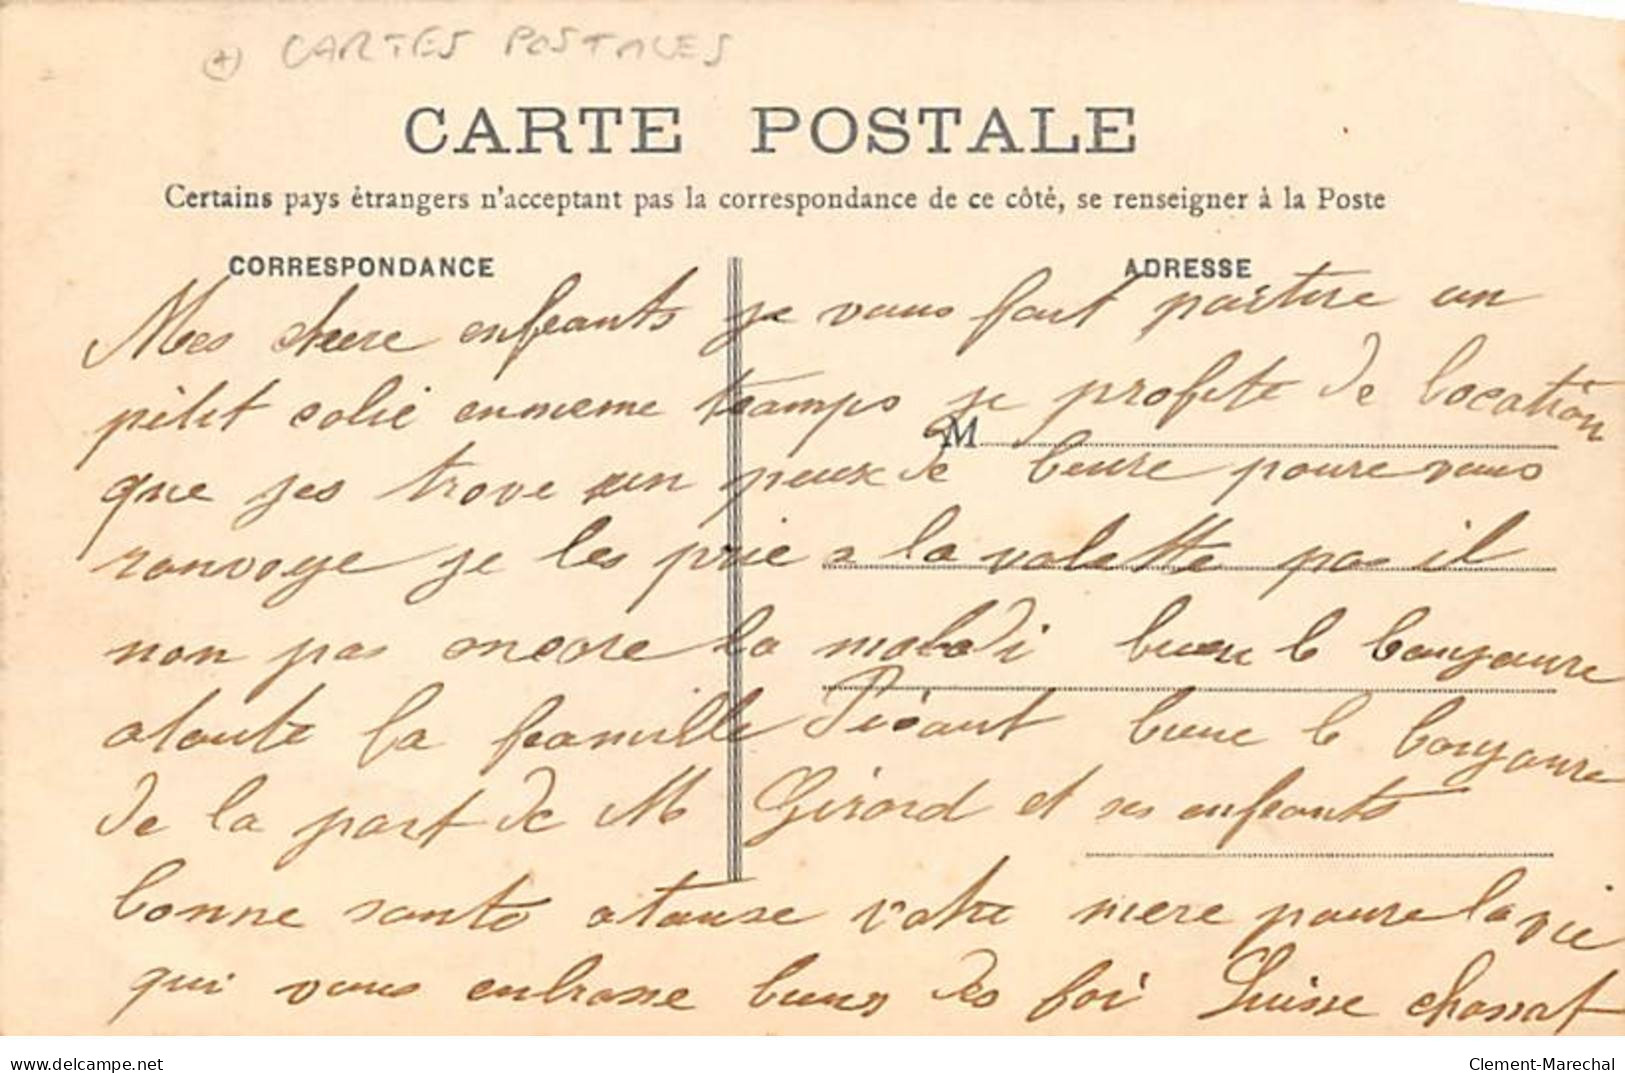 CARTES POSTALES
CARTE POSTALE
Certains pays étrangers n'acceptant pas la correspondance de ce côté, se renseigner à la Poste
CORRESPONDANCE
ADRESSE
Mes chere enfants je vous fait partire un
pétit colie enmeme tramps je profite de locatión
M
que jes trove un peux de beure poure vous
ranvoye je les prie a la valette pas il
non pas encore la maladi buen le bonjoure
atoute la famille Picaut bune le bonjoure
de la part de M Girard et ses enfants
bonne santé a touse votre mere poure la vie
qui vous enbrasse buens des foi Luisse chassat
delcampe.net
Clement-Marechal